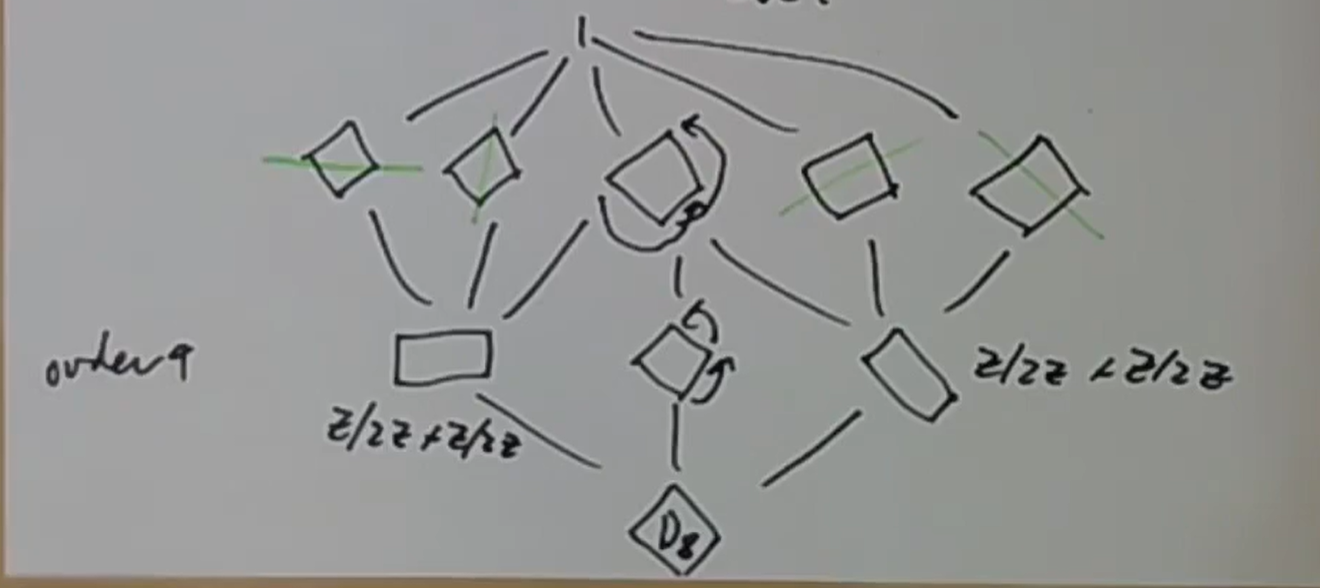 1
order 4
Z/2Z × Z/2Z
Z/2Z × Z/2Z
D8